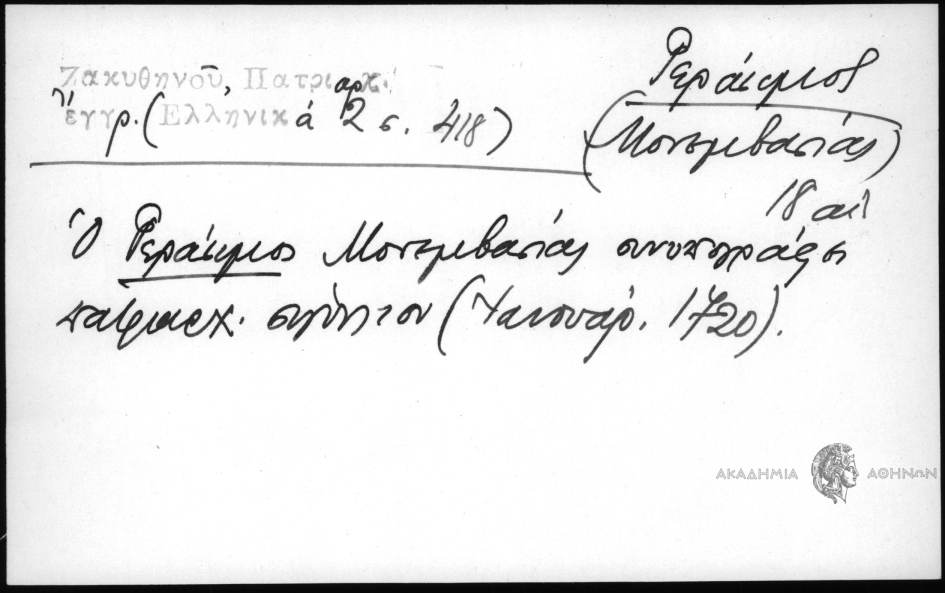 Ζακυθηνοῦ, Πατριαρχ.
ἔγγρ. (Ἑλληνικά 2 σ. 418)
Γεράσιμος
(Μονεμβασίας)
18 αἰ
Ὁ Γεράσιμος Μονεμβασίας συνυπογράφει
πατριαρχ. σιγίλλιον (Ἰανουάρ. 1720).
ΑΚΑΔΗΜΙΑ ΑΘΗΝΩΝ